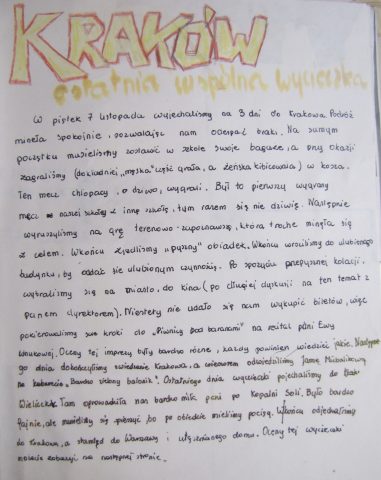 KRAKÓW
ostatnia wspólna wycieczka
W piątek 7 listopada wyjechaliśmy na 3 dni do Krakowa. Podróż
minęła spokojnie, pozwalając nam odespać braki. Na samym
początku musieliśmy zostawić w szkole swoje bagaże, a przy okazji
zagraliśmy (dokładniej „męska" część grała, a żeńska kibicowała) w kosza.
Ten mecz chłopacy, o dziwo, wygrali. Był to pierwszy wygrany
mecz naszej szkoły z inną szkołą, tym razem się nie dziwię. Następnie
wyruszyliśmy na grę terenowo-zapoznawczą, która trochę minęła się
z celem. Wkońcu zjedliśmy „pyszny" obiadek. Wkońcu wróciliśmy do ulubionego
budynku, by oddać się ulubionym czynnością. Po spożyciu przepysznej kolacji,
wybraliśmy się na miasto, do kina (po długiej dyskusji na ten temat z
panem dyrektorem). Niestety nie udało się nam wykupić biletów, więc
pokierowaliśmy swe kroki do „Piwnicy pod baranami" na recital pani Ewy
Wnukowej. Oceny tej imprezy były bardzo różne, każdy powinien wiedzieć jakie. Następne
go dnia dokończyliśmy zwiedzanie Krakowa, a wieczorem odwiedziliśmy Jamę Michalikową
na kabarecie „Bardzo zielony balonik". Ostatniego dnia wycieczki pojechaliśmy do
Wieliczki. Tam oprowadziła nas bardzo miła pani po Kopalni Soli. Było bardzo
fajnie, ale musieliśmy się spieszyć, bo po obiedzie mieliśmy pociąg. Wkońcu odjechaliśmy
do Krakowa, a stamtąd do Warszawy i utęsknianego domu. Oceny tej wycieczki
możecie zobaczyć na następnej stronie.